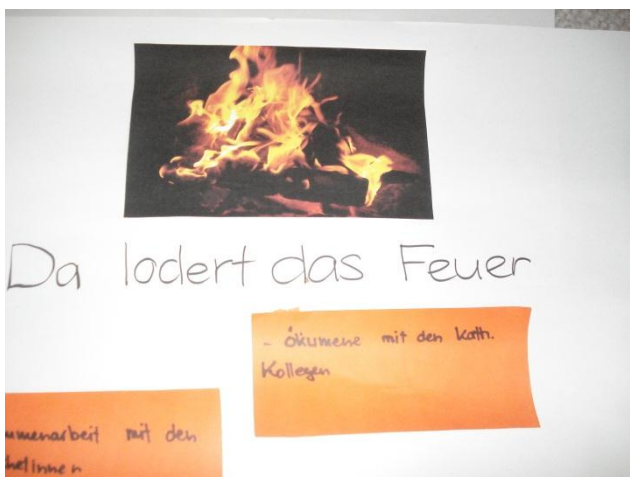 Da lodert das Feuer
- Ökumene mit den Kath.
Kollegen
mmenarbeit mit den